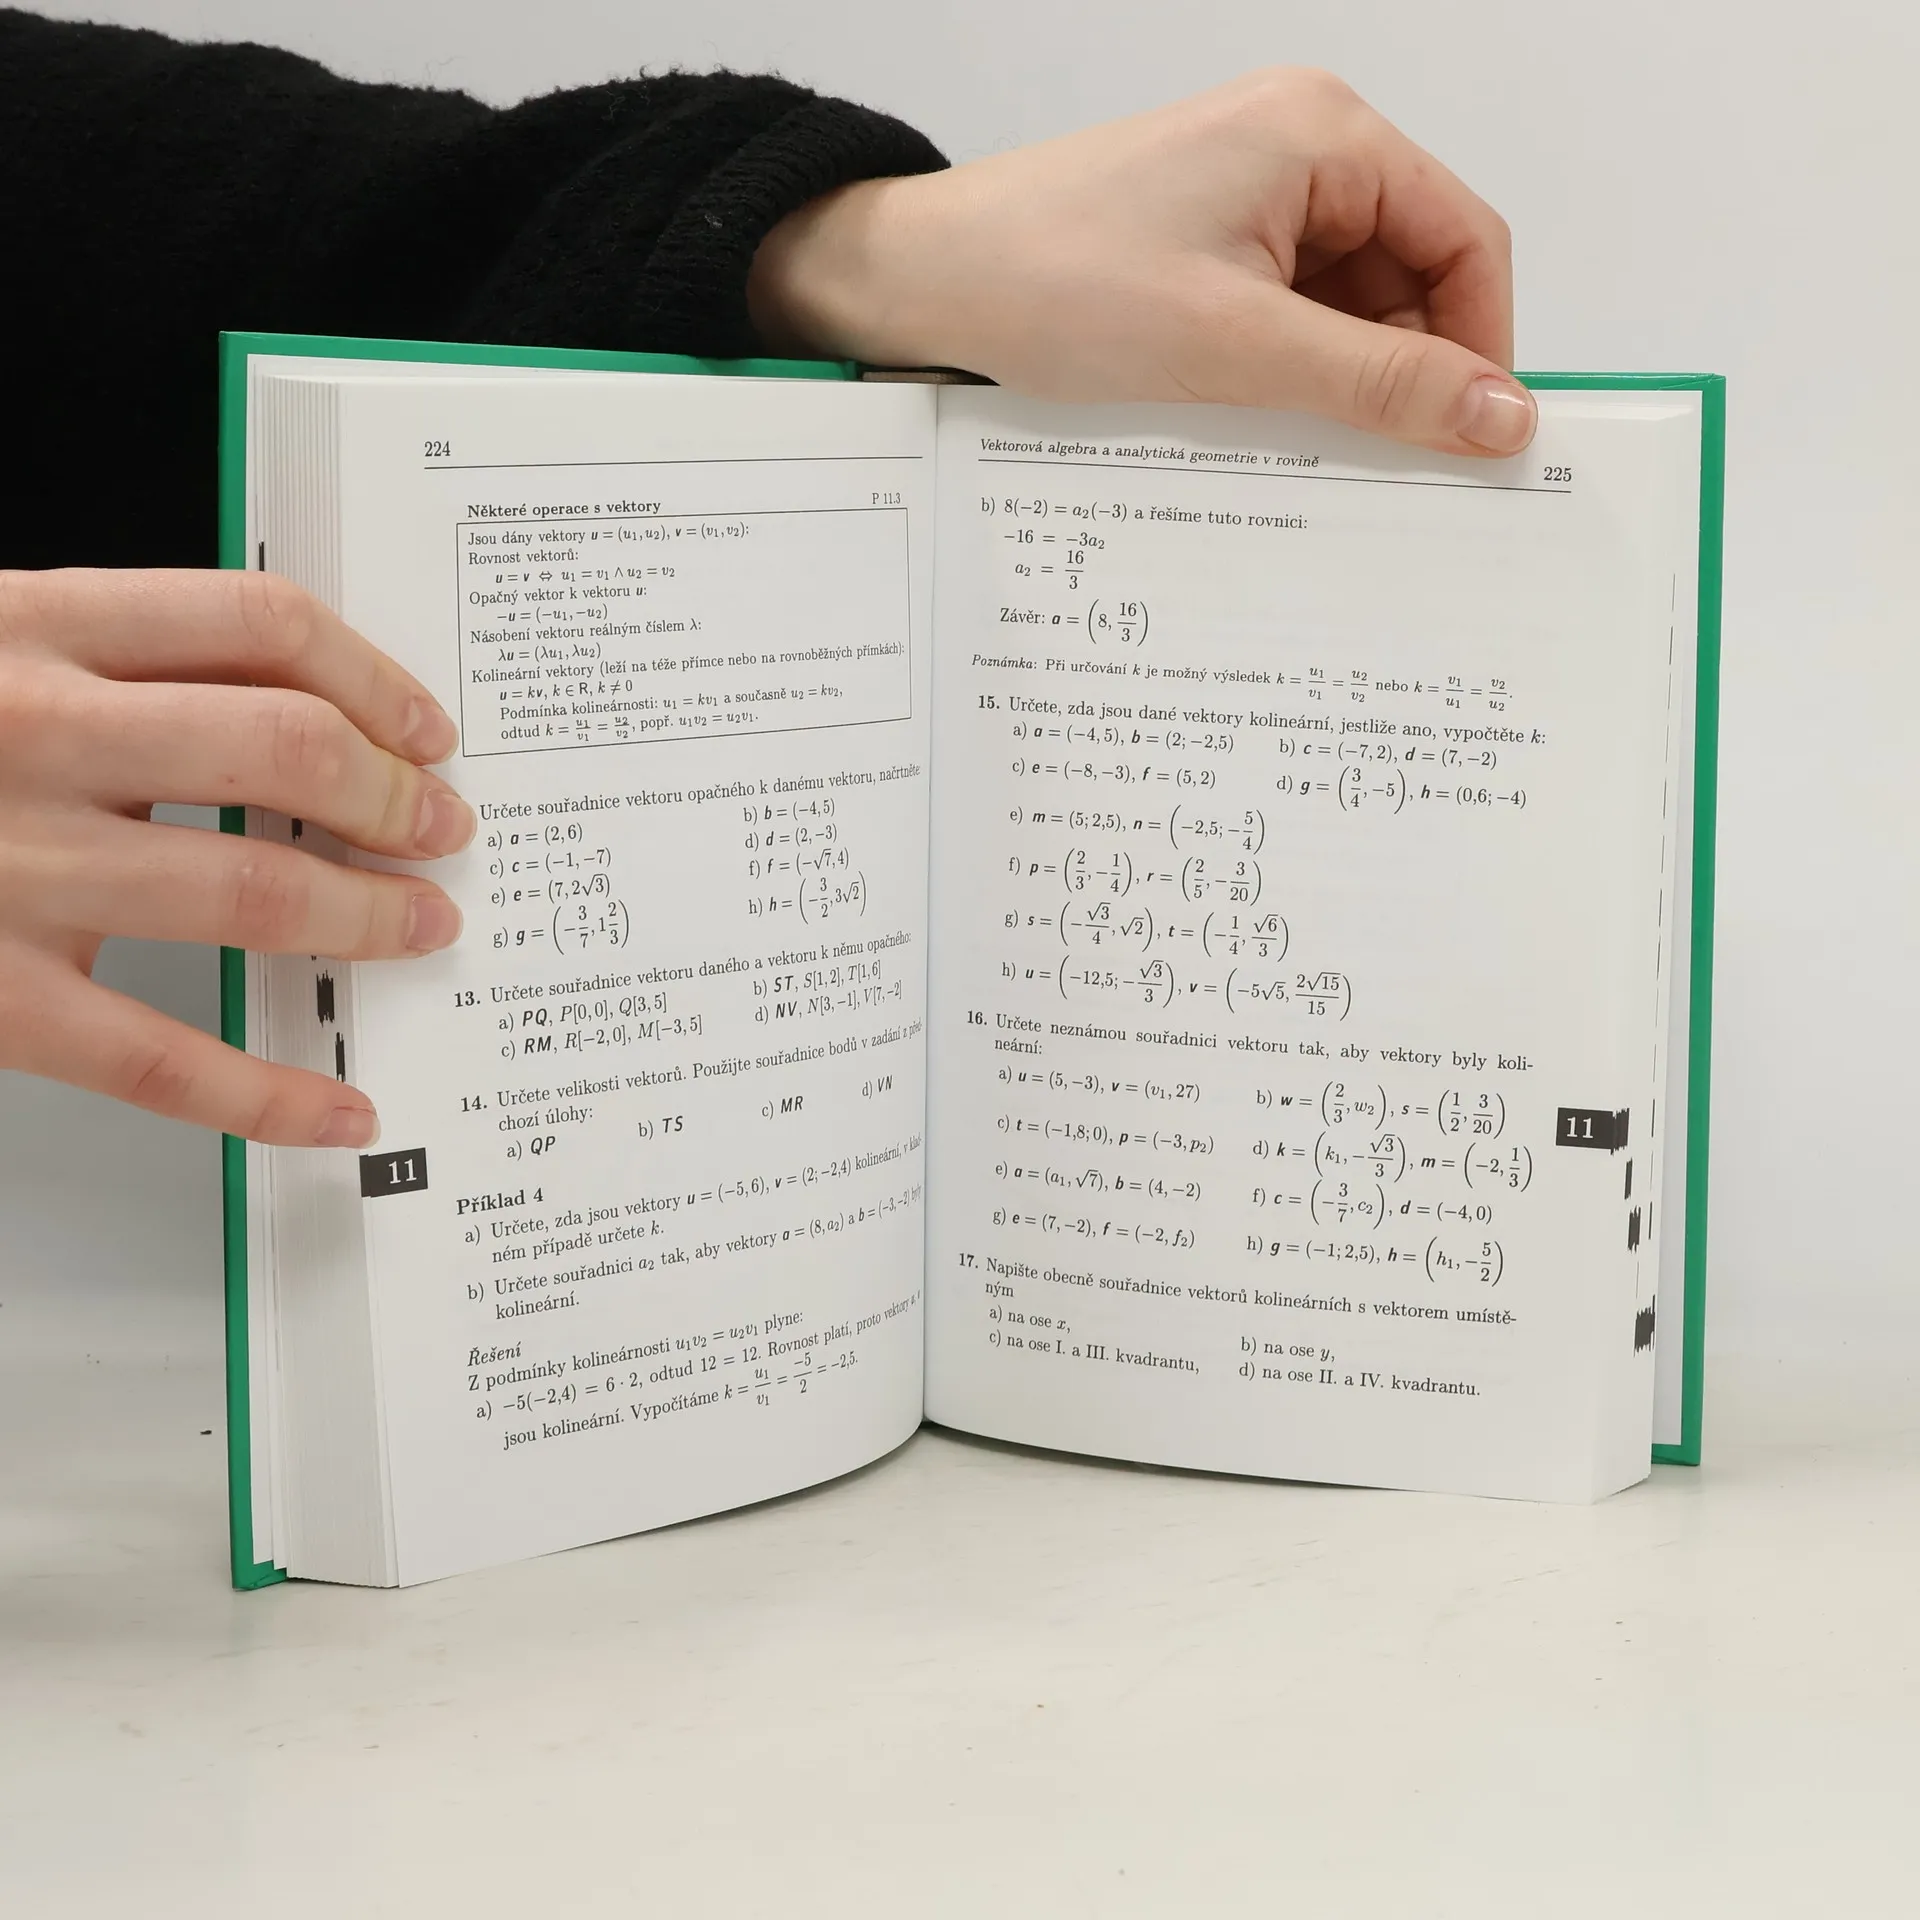 224
Některé operace s vektory P 11.3
Jsou dány vektory u = (u₁, u₂), v = (v₁, v₂):
Rovnost vektorů:
u = v ⇔ u₁ = v₁ ∧ u₂ = v₂
Opačný vektor k vektoru u:
−u = (−u₁, −u₂)
Násobení vektoru reálným číslem λ:
λu = (λu₁, λu₂)
Kolineární vektory (leží na téže přímce nebo na rovnoběžných přímkách):
u = kv, k ∈ R, k ≠ 0
Podmínka kolineárnosti: u₁ = kv₁ a současně u₂ = kv₂,
odtud k = u₁/v₁ = u₂/v₂, popř. u₁v₂ = u₂v₁.
Určete souřadnice vektoru opačného k danému vektoru, načrtněte
a) a = (2, 6) b) b = (−4, 5)
c) c = (−1, −7) d) d = (2, −3)
e) e = (7, 2√3) f) f = (−√7, 4)
g) g = (−3/7, 1 2/3) h) h = (−3/2, 3√2)
13. Určete souřadnice vektoru daného a vektoru k němu opačného:
a) PQ, P[0, 0], Q[3, 5] b) ST, S[1, 2], T[1, 6]
c) RM, R[−2, 0], M[−3, 5] d) NV, N[3, −1], V[7, −2]
14. Určete velikosti vektorů. Použijte souřadnice bodů v zadání z
chozí úlohy:
a) QP b) TS c) MR d) VN
11
Příklad 4
a) Určete, zda jsou vektory u = (−5, 6), v = (2; −2,4) kolineární, v
ném případě určete k.
b) Určete souřadnici a₂ tak, aby vektory a = (8, a₂) a b = (−3, −2)
kolineární.
Řešení
Z podmínky kolineárnosti u₁v₂ = u₂v₁ plyne:
a) −5(−2,4) = 6 · 2, odtud 12 = 12. Rovnost platí, proto vektory u,
jsou kolineární. Vypočítáme k = u₁/v₁ = −5/2 = −2,5.
Vektorová algebra a analytická geometrie v rovině 225
b) 8(−2) = a₂(−3) a řešíme tuto rovnici:
−16 = −3a₂
a₂ = 16/3
Závěr: a = (8, 16/3)
Poznámka: Při určování k je možný výsledek k = u₁/v₁ = u₂/v₂ nebo k = v₁/u₁ = v₂/u₂.
15. Určete, zda jsou dané vektory kolineární, jestliže ano, vypočtěte k:
a) a = (−4, 5), b = (2; −2,5) b) c = (−7, 2), d = (7, −2)
c) e = (−8, −3), f = (5, 2) d) g = (3/4, −5), h = (0,6; −4)
e) m = (5; 2,5), n = (−2,5; −5/4)
f) p = (2/3, −1/4), r = (2/5, −3/20)
g) s = (−√3/4, √2), t = (−1/4, √6/3)
h) u = (−12,5; −√3/3), v = (−5√5, 2√15/15)
16. Určete neznámou souřadnici vektoru tak, aby vektory byly koli-
neární:
a) u = (5, −3), v = (v₁, 27) b) w = (2/3, w₂), s = (1/2, 3/20)
c) t = (−1,8; 0), p = (−3, p₂) d) k = (k₁, −√3/3), m = (−2, 1/3)
e) a = (a₁, √7), b = (4, −2) f) c = (−3/7, c₂), d = (−4, 0)
g) e = (7, −2), f = (−2, f₂) h) g = (−1; 2,5), h = (h₁, −5/2)
17. Napište obecně souřadnice vektorů kolineárních s vektorem umístě-
ným
a) na ose x, b) na ose y,
c) na ose I. a III. kvadrantu, d) na ose II. a IV. kvadrantu.
11